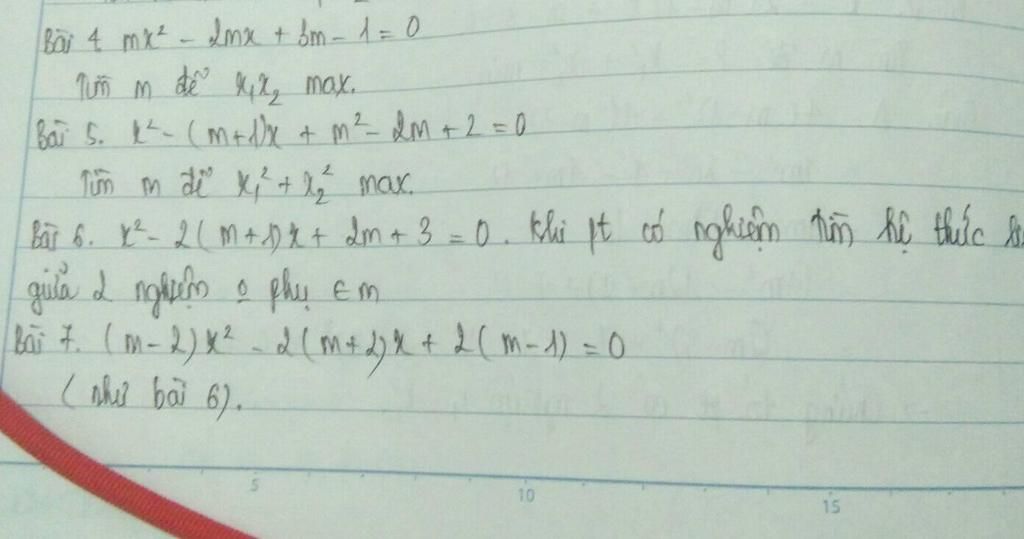 Bài 4 mx² - 2mx + 3m - 1 = 0
Tìm m để x₁x₂ max.
Bài 5. x² - (m+1)x + m² - 2m + 2 = 0
Tìm m để x₁² + x₂² max.
Bài 6. x² - 2(m+1)x + 2m + 3 = 0. Khi pt có nghiệm tìm hệ thức
giữa 2 nghiệm o phụ ∈ m
Bài 7. (m-2)x² - 2(m+2)x + 2(m-1) = 0
(như bài 6).
5
10
15